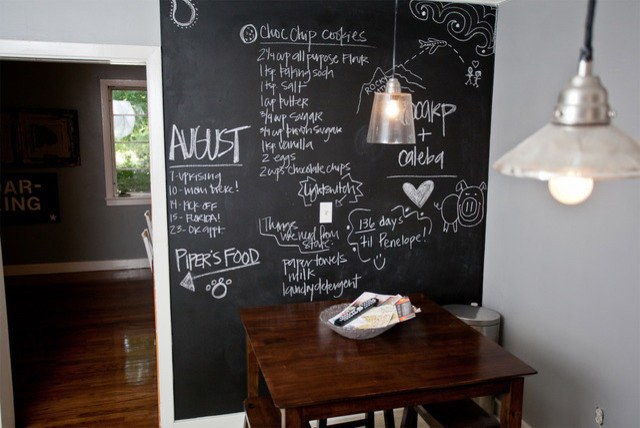 CHOC CHIP COOKIES
2 1/4 cup all purpose flour
1 tsp baking soda
1 tsp salt
1 cup butter
3/4 cup sugar
3/4 cup brown sugar
1 tsp vanilla
2 eggs
2 cups chocolate chips
lightswitch
AUGUST
7- uprising
10- mom here!
14- kick off
15- FLORIDA!
23- DR appt
PIPER'S FOOD
Things
we need from
store
paper towels
milk
laundry detergent
136 days
'til Penelope!
+
caleba